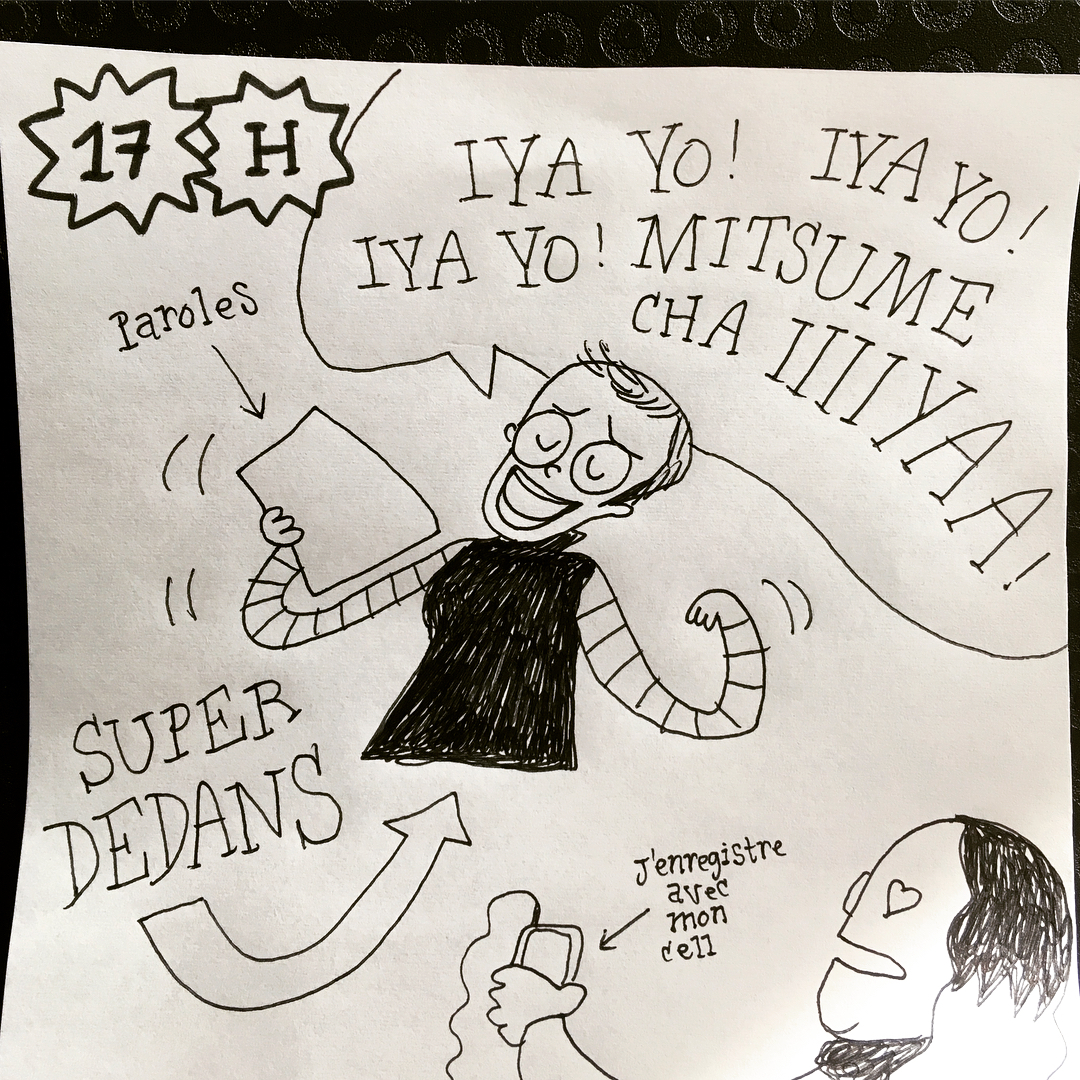 17 H
IYA YO! IYA YO!
IYA YO! MITSUME
CHA IIIIYAA!
Paroles
SUPER
DEDANS
J'enregistre
avec
mon
cell